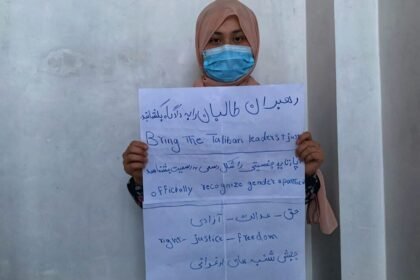 رهبران طالبان را به دادگاه بکشانید
Bring The Taliban leaders
جنسیتی را شکل رسمی به رسمیت بشناسد
officially recognize gender
حق – عدالت – آزادی
right – Justice – freedom
جنبش شنبه های ارغوانی